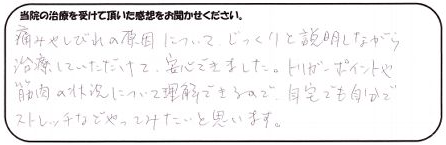 当院の治療を受けて頂いた感想をお聞かせください。
痛みやしびれの原因について、じっくりと説明しながら
治療していただけて、安心できました。トリガーポイントや
筋肉の状況について理解できるので、自宅でも自分で
ストレッチなどやってみたいと思います。